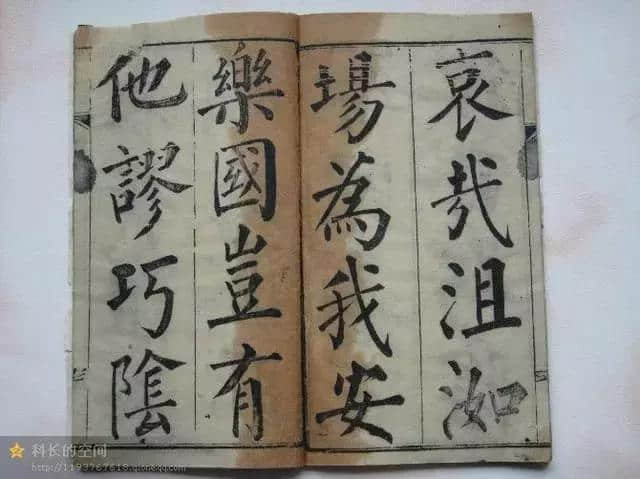 哀哉沮洳
場為我安
樂國豈有
他謬巧陰
科长的空间
http://1193767618.qzone.qq.com